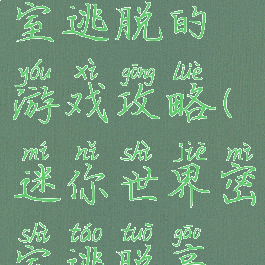 室逃脱的
yóu xì gōng lüè
游戏攻略(
mí nǐ shì jiè mì
迷你世界密
shì táo tuō gāo
室逃脱高